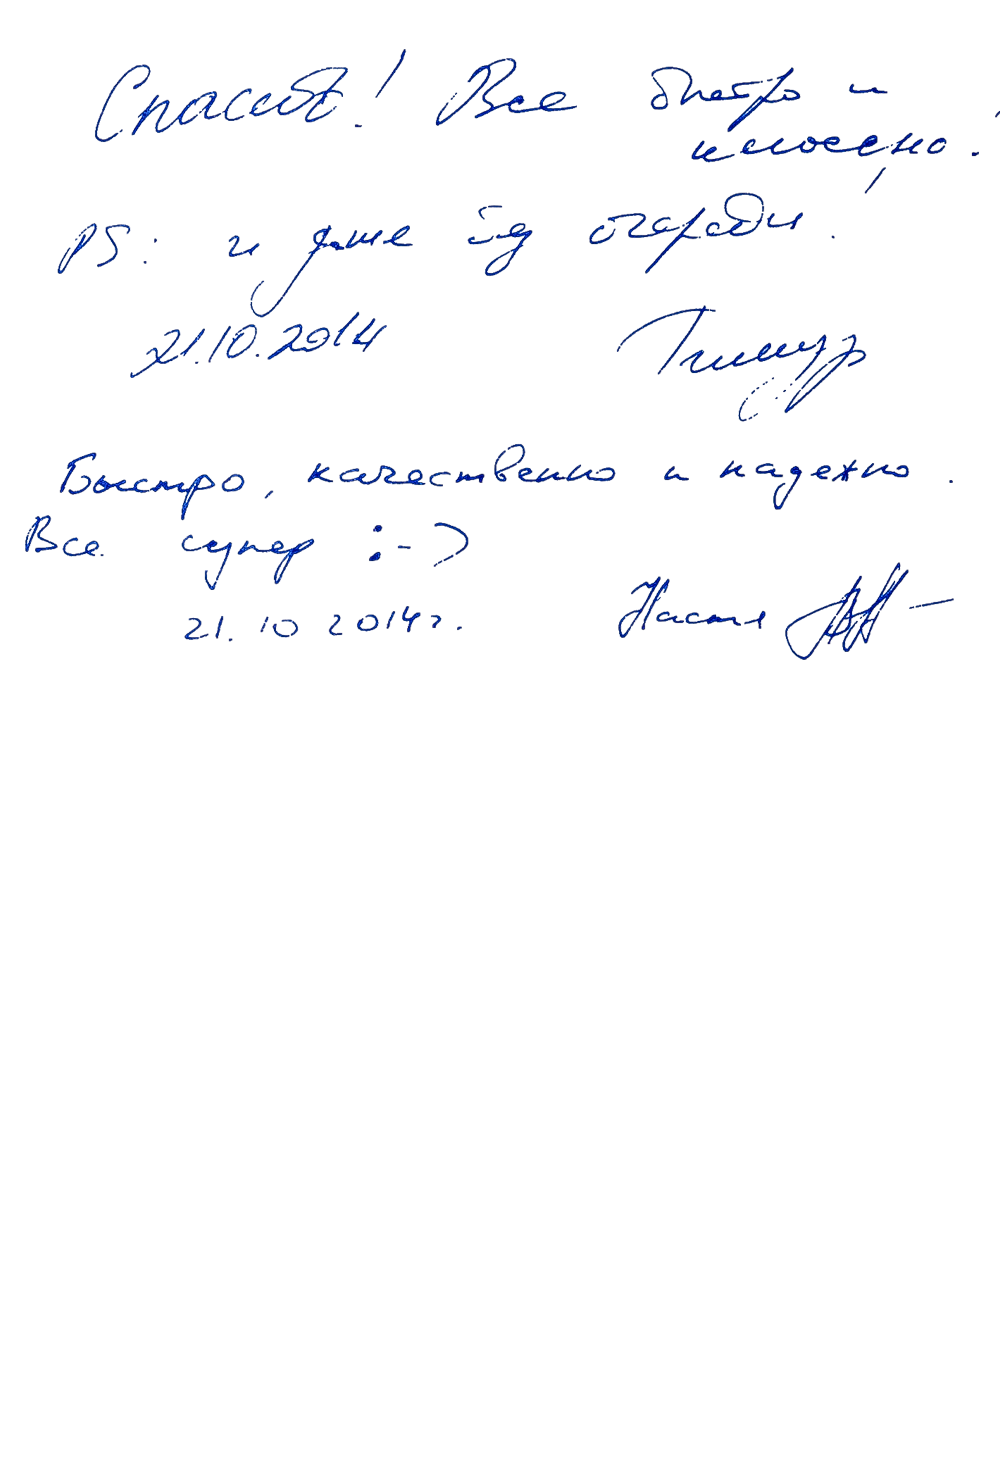 Спасибо! Все быстро и
классно!
PS: и даже без очереди!
21.10.2014 Тимур
Быстро, качественно и надежно.
Все супер :-)
21.10 2014г. Настя